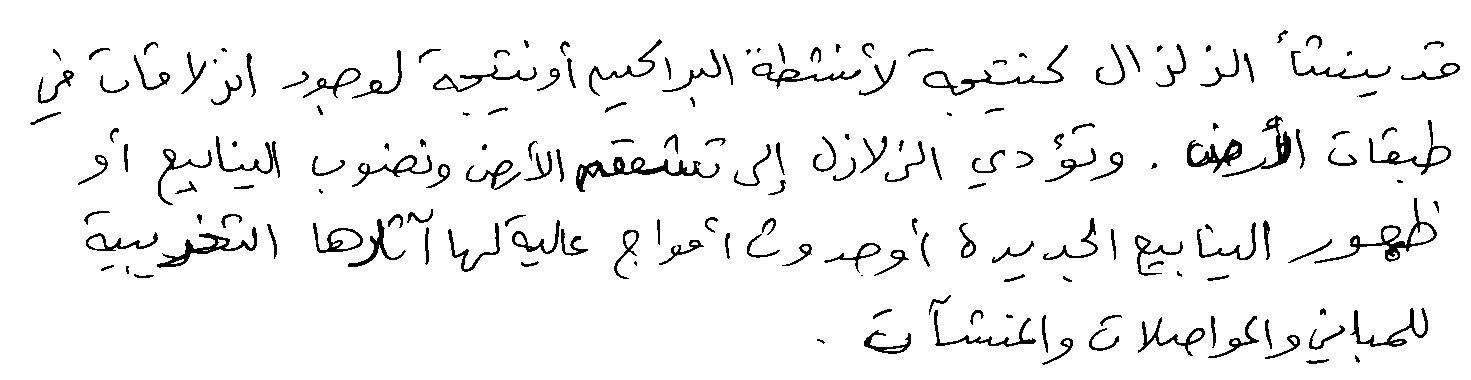 قد ينشأ الزلزال كنتيجة لأنشطة البراكين أو نتيجة لوجود انزلاقات في
طبقات الأرض . وتؤدي الزلازل إلى تشقق الأرض ونضوب الينابيع أو
ظهور الينابيع الجديدة أو حدوث أمواج عالية لها آثارها التخريبية
للمباني والمواصلات والمنشآت .